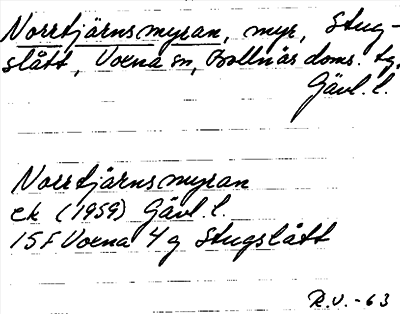 Norrtjärnsmyran, myr, Stug-
slått, Voxna sn, Bollnäs doms. tg,
Gävl. l.
Norrtjärnsmyran
ek (1959) Gävl. l.
15F Voxna 4g Stugslått
R.U. -63